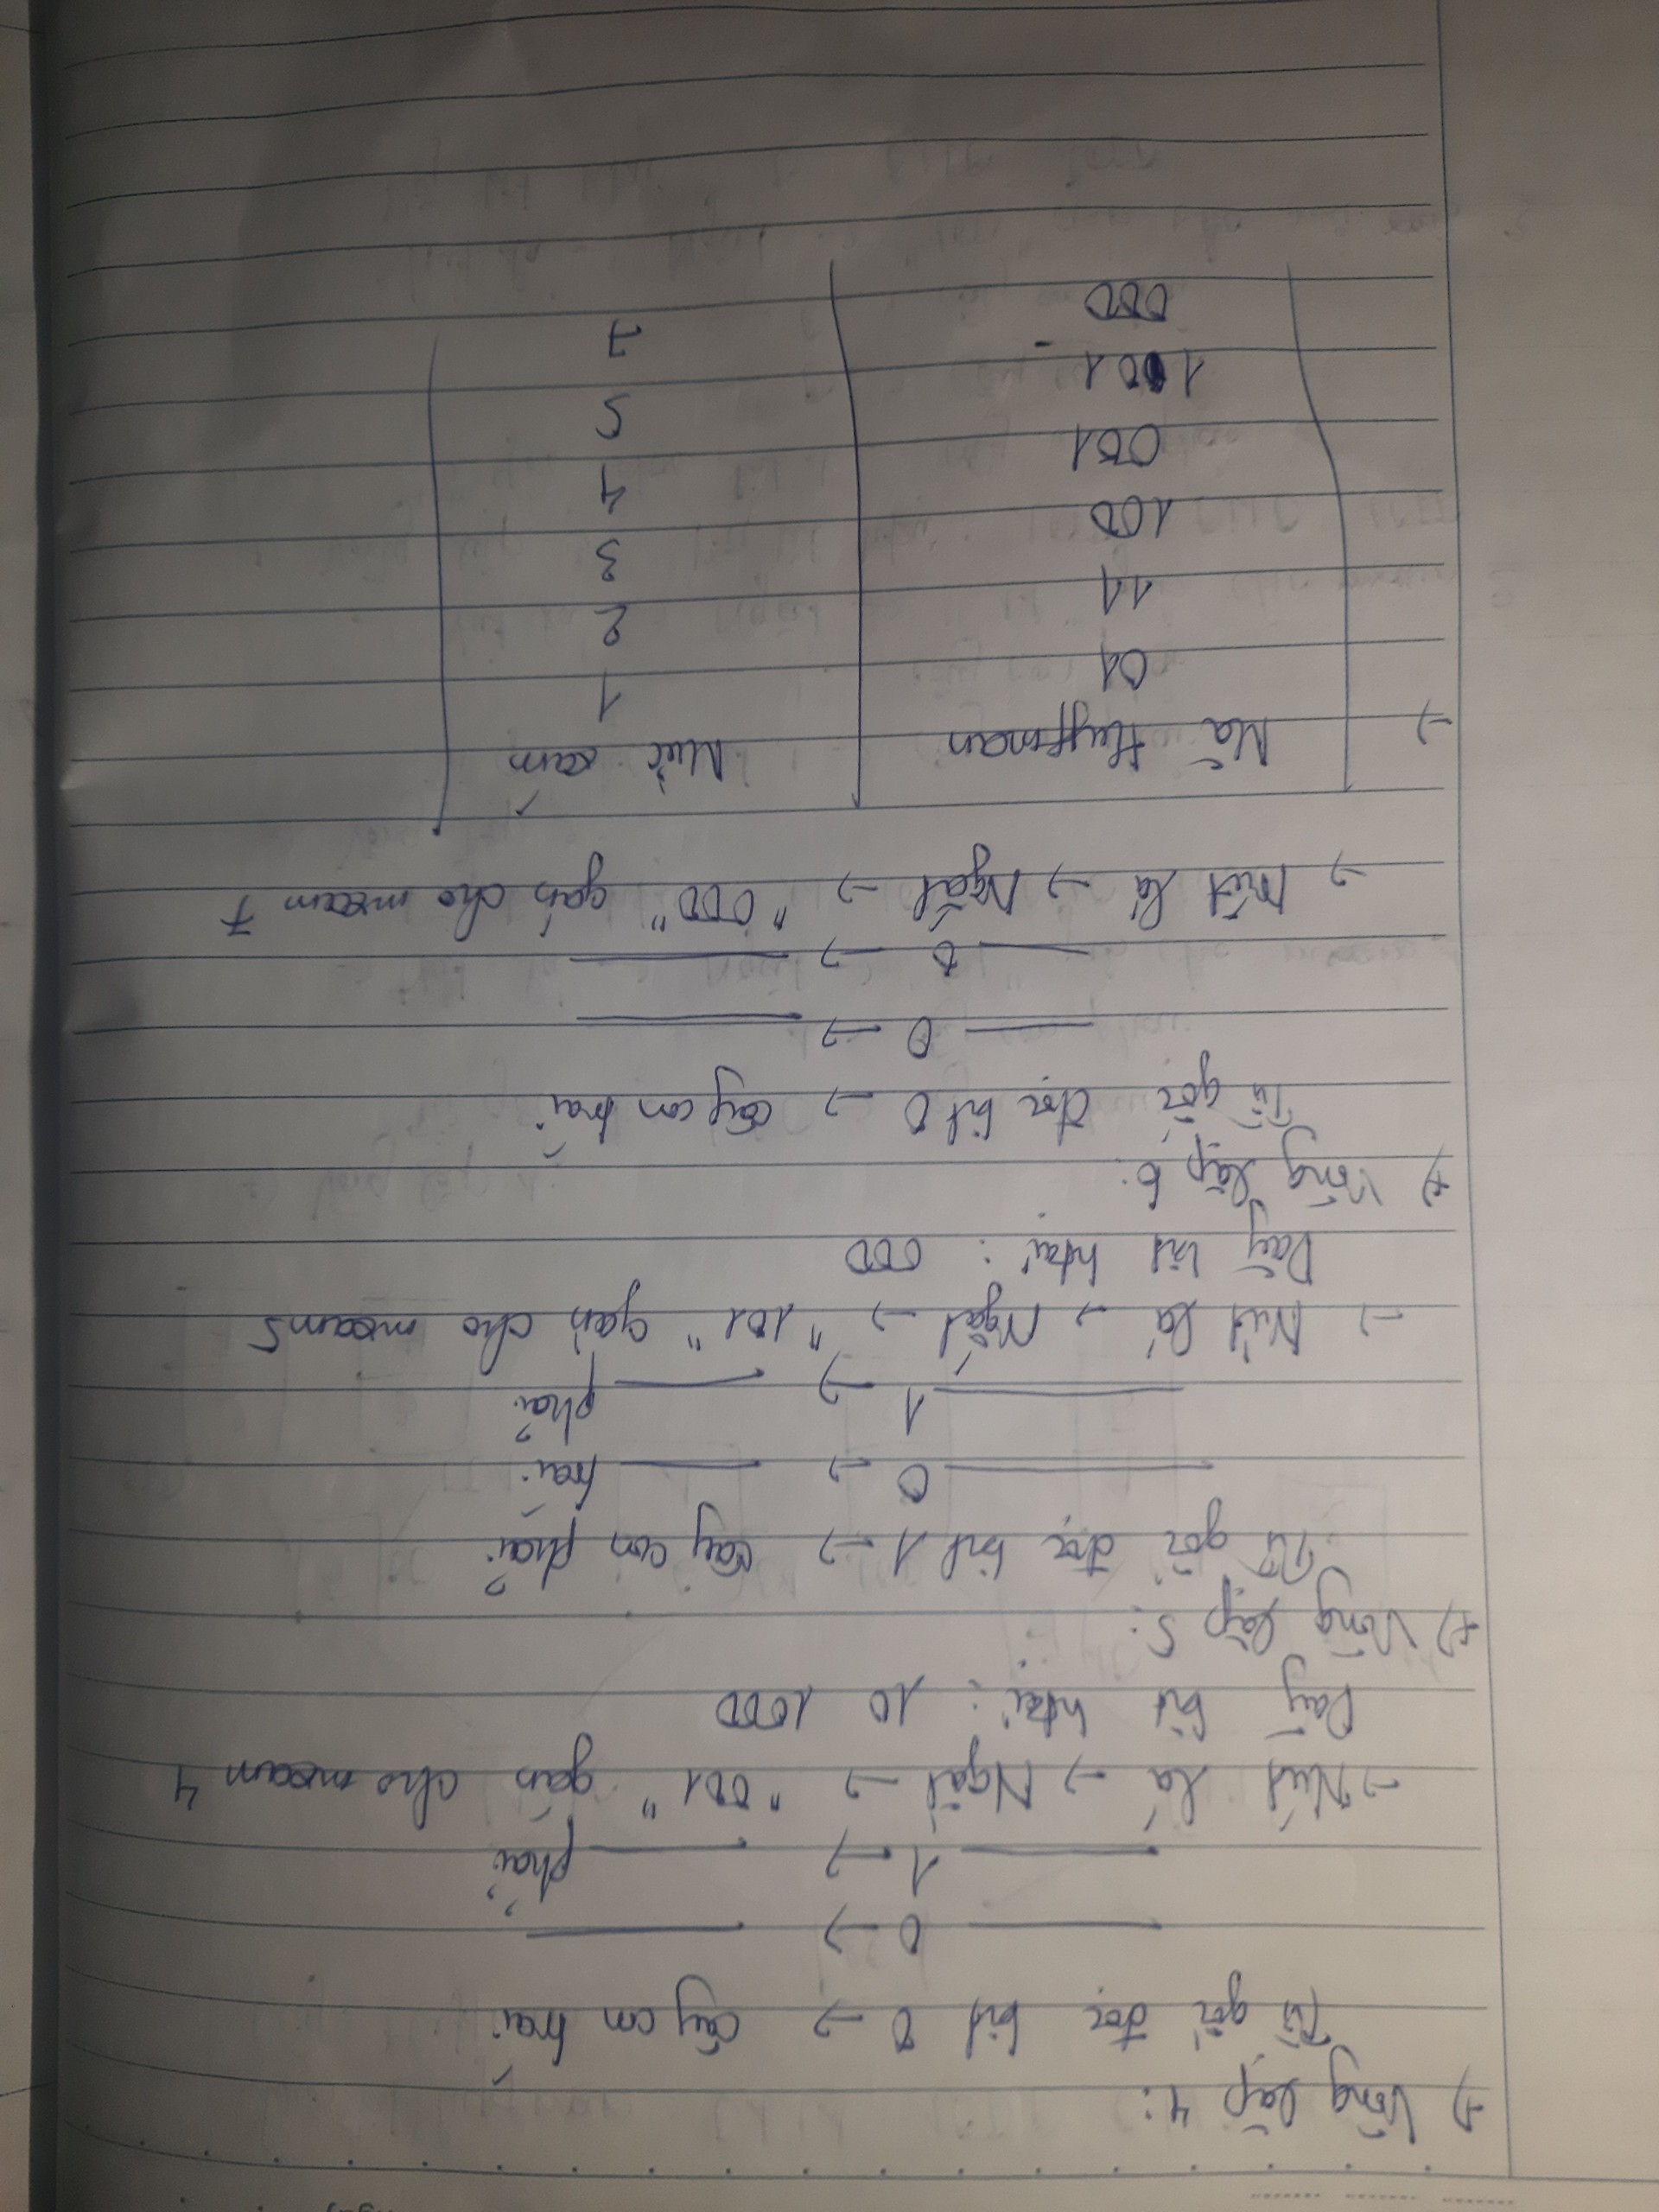 +) Vòng lặp 4:
Từ gốc đọc bit 0 → cây con trái
—— 0 → ——
—— 1 → —— phải
→ Nút lá → Ngắt → "001" gán cho mxám 4
Dãy bit htại : 10 1000
+) Vòng lặp 5:
Từ gốc đọc bit 1 → cây con phải
—— 0 → —— trái
—— 1 → —— phải
→ Nút lá → Ngắt → "101" gán cho mxám 5
Dãy bit htại : 000
+) Vòng lặp 6:
Từ gốc đọc bit 0 → cây con trái
—— 0 → ——
—— 0 → ——
→ Nút lá → Ngắt → "000" gán cho mxám 7
→ Mã Huffman Mức xám
01 1
11 2
100 3
001 4
101 5
000 7